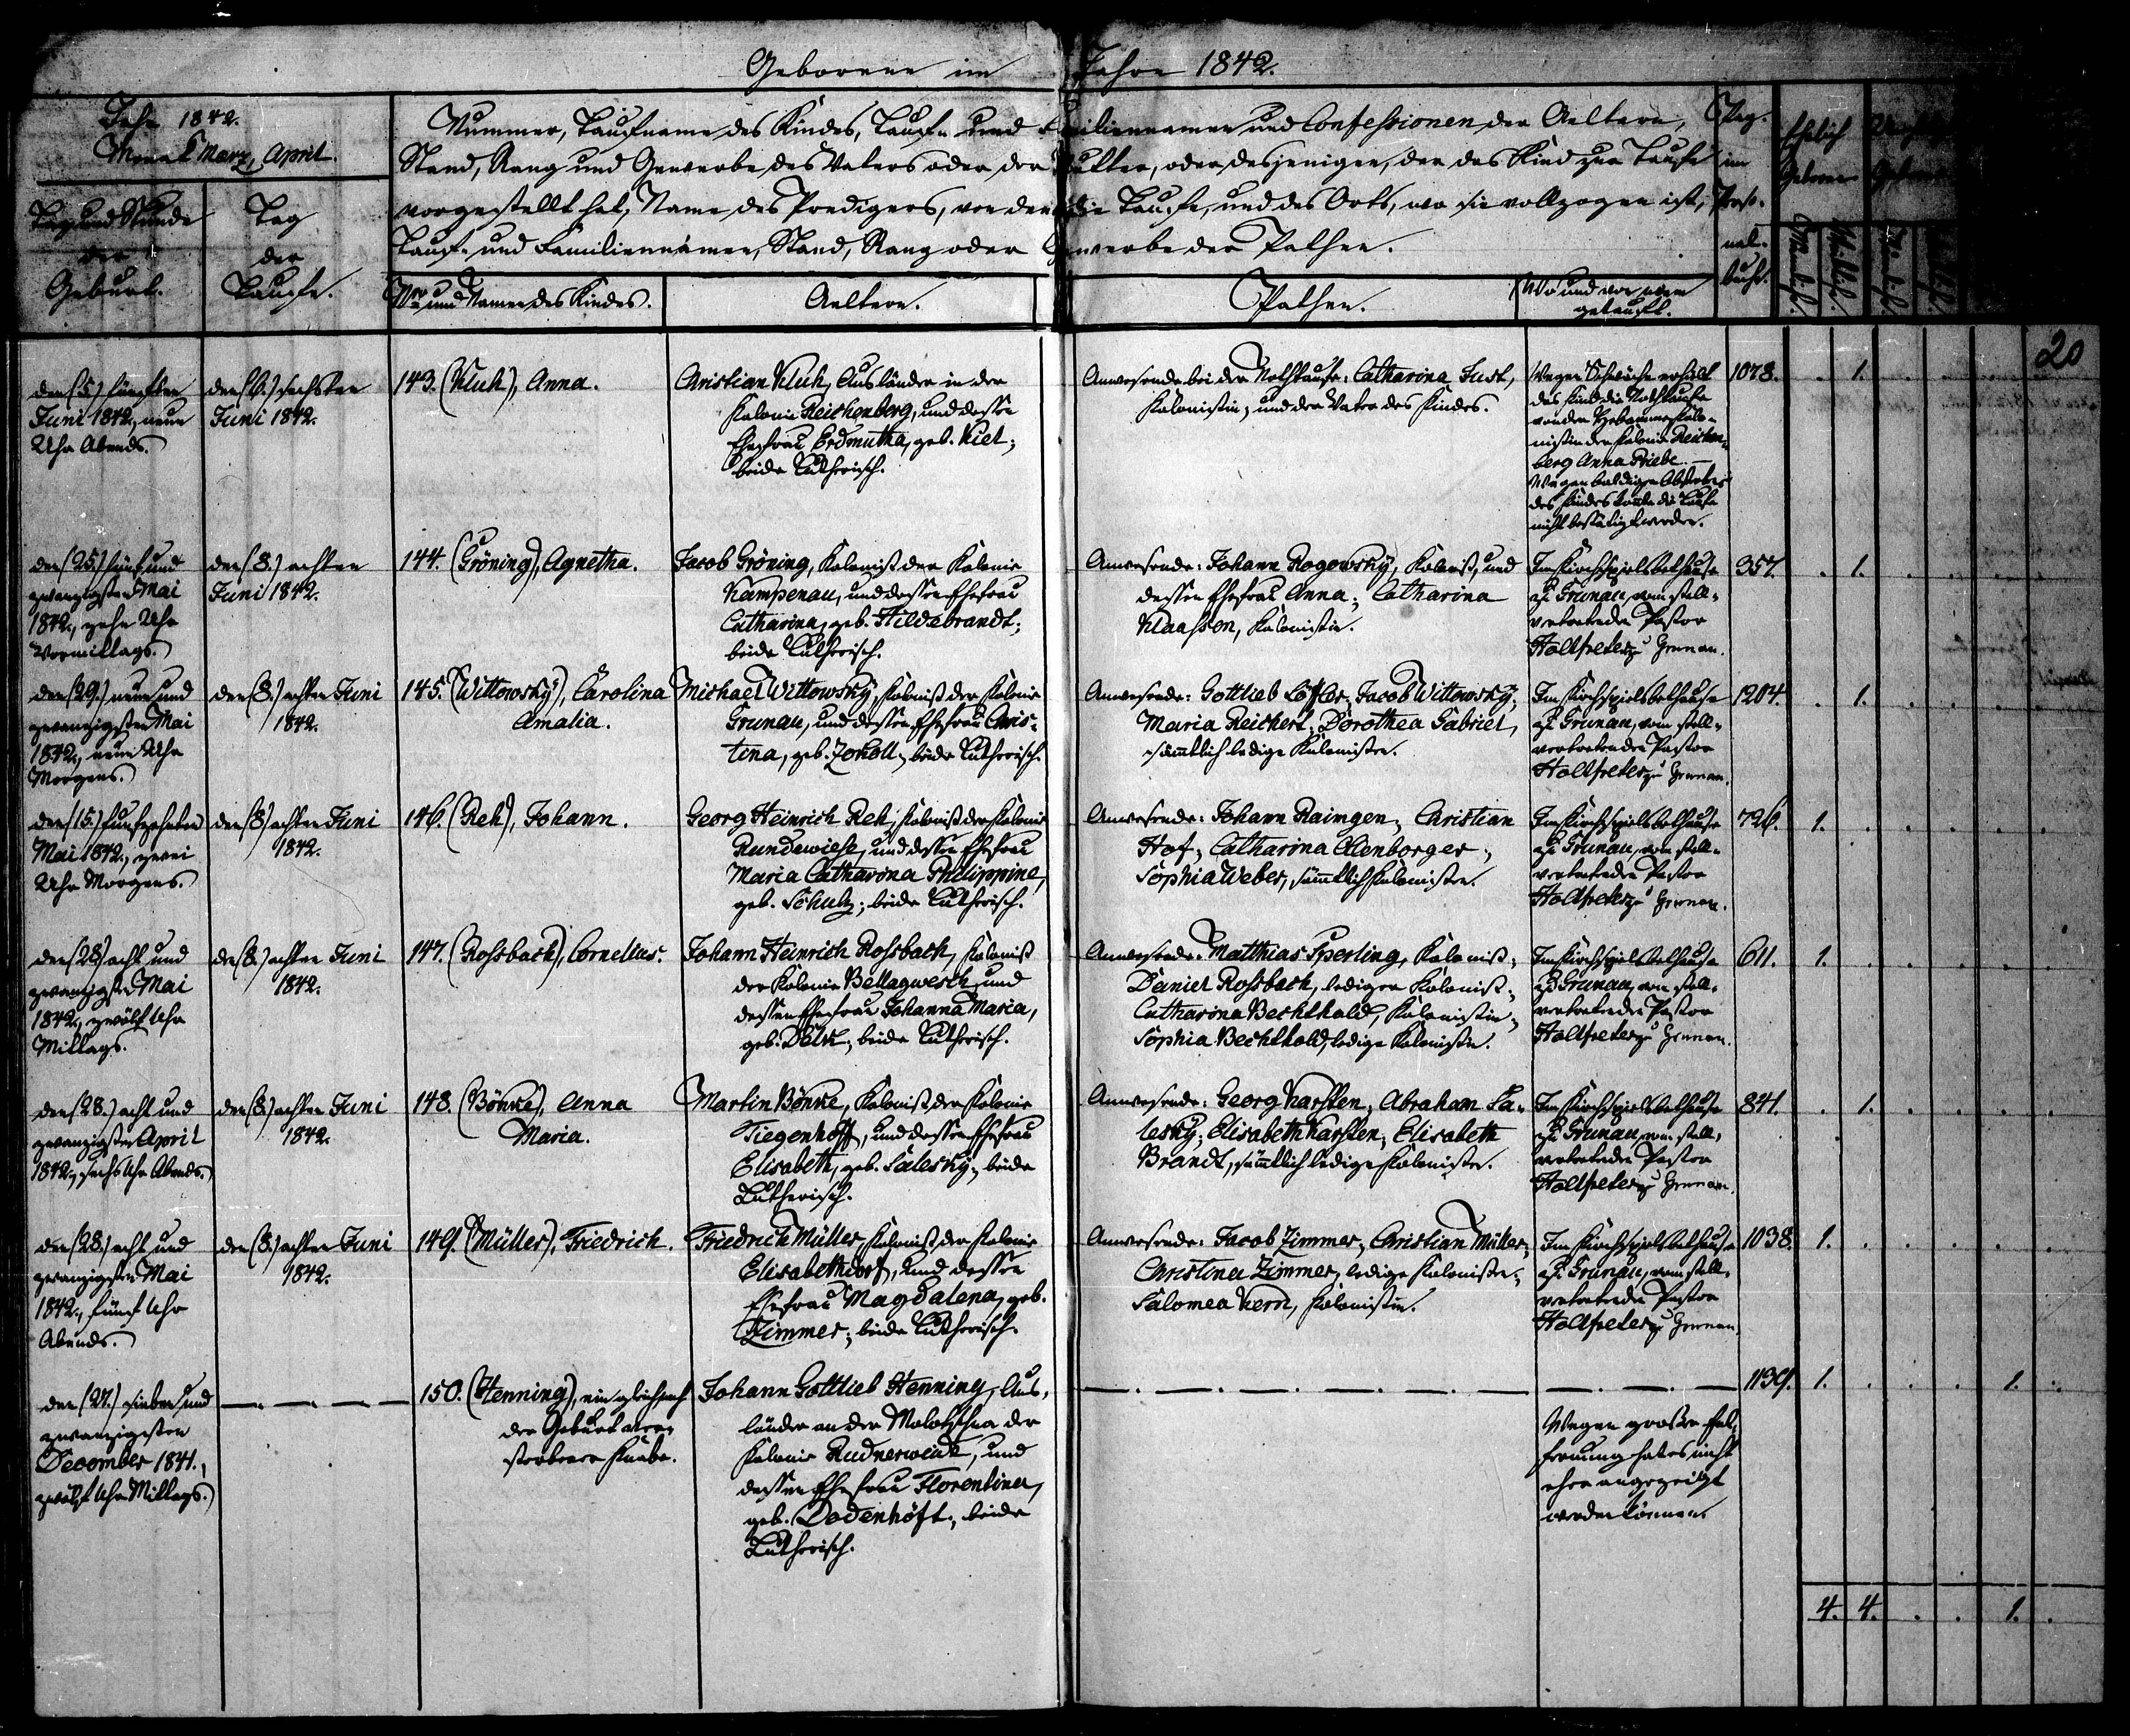 Geborene im Jahre 1842.
Jahr 1842.
Monat März, April.
Tag und Stunde
der
Geburt.
Tag
der
Taufe.
Nummer, Taufname des Kindes, Tauf- und Familiennamen und Confessionen der Aeltern,
Stand, Rang und Gewerbe des Vaters oder der Mutter, oder desjenigen, der das Kind zur Taufe
vorgestellt hat, Name des Predigers, von dem die Taufe, und des Orts, wo sie vollzogen ist,
Tauf- und Familiennamen, Stand, Rang oder Gewerbe der Pathen.
Nro und Namen des Kindes.
Aeltern.
Pathen.
Wo und von wem
getauft.
Pag.
im
Perso-
nal-
buch.
Ehelich
Geboren
20
den (5.) fünften
Juni 1842., neun
Uhr Abends.
den (6.) sechsten
Juni 1842.
143. (Kluh), Anna.
Christian Kluh, Ausländer in der
Kolonie Reichenberg, und dessen
Ehefrau Erdmutha, geb. Kiel;
beide Lutherisch.
Anwesende bei der Nothtaufe: Catharina Just,
Kolonistin, und der Vater des Kindes.
Wegen Schwäche erhielt
das Kind die Nothtaufe
von der Hebamme Kolo-
nistin der Kolonie Reichen-
berg Anna Priebe. —
Wegen baldigen Absterbens
des Kindes konnte die Taufe
nicht bestätigt werden.
1078. . 1. . . . .
den (25.) fünf und
zwanzigsten Mai
1842., zehn Uhr
Vormittags.
den (8.) achten
Juni 1842.
144. (Gröning), Agnetha.
Jacob Gröning, Kolonist der Kolonie
Kampenau, und dessen Ehefrau
Catharina, geb. Hildebrandt;
beide Lutherisch.
Anwesende: Johann Rogowsky, Kolonist, und
dessen Ehefrau Anna; Catharina
Klaassen, Kolonistin.
Im Kirchspielsbethause
zu Grunau, vom stell-
vertretenden Pastor
Holtfreter zu Grunau.
357. . 1. . . . .
den (29.) neun und
zwanzigsten Mai
1842., neun Uhr
Morgens.
den (8.) achten Juni
1842.
145. (Wittowsky), Carolina
Amalia.
Michael Wittowsky, Kolonist der Kolonie
Grunau, und dessen Ehefrau Chris-
tina, geb. Zokoll; beide Lutherisch.
Anwesende: Gottlieb Löffler, Jacob Wittowsky;
Maria Reichert, Dorothea Gabriel,
sämtlich ledige Kolonisten.
Im Kirchspielsbethause
zu Grunau, vom stell-
vertretenden Pastor
Holtfreter zu Grunau.
1204. . 1. . . . .
den (15.) fünfzehnten
Mai 1842., zwei
Uhr Morgens.
den (8) achten Juni
1842.
146. (Reh), Johann.
Georg Heinrich Reh, Kolonist der Kolonie
Rundewiese, und dessen Ehefrau
Maria Catharina Philippine,
geb. Schulz; beide Lutherisch.
Anwesende: Johann Raimgen, Christian
Hof; Catharina Olenborger;
Sophia Weber, sämtlich Kolonisten.
Im Kirchspielsbethause
zu Grunau, vom stell-
vertretenden Pastor
Holtfreter zu Grunau.
726. 1. . . . . .
den (28) acht und
zwanzigsten Mai
1842., zwölf Uhr
Mittags.
den (8.) achten Juni
1842.
147. (Rossbach), Cornelius.
Johann Heinrich Rossbach, Kolonist
der Kolonie Bellagwesch, und
dessen Ehefrau Johanna Maria,
geb. Delk; beide Lutherisch.
Anwesende: Matthias Sperling, Kolonist;
Daniel Rossbach, lediger Kolonist;
Catharina Bechthold, Kolonistin;
Sophia Bechthold, ledige Kolonistin.
Im Kirchspielsbethause
zu Grunau, vom stell-
vertretenden Pastor
Holtfreter zu Grunau.
611. 1. . . . . .
den (28.) acht und
zwanzigsten April
1842., sechs Uhr Abends.
den (8.) achten Juni
1842.
148. (Bönke), Anna
Maria.
Martin Bönke, Kolonist der Kolonie
Tiegenhoff, und dessen Ehefrau
Elisabeth, geb. Salesky; beide
Lutherisch.
Anwesende: Georg Karsten, Abraham Sa-
lesky; Elisabeth Karsten, Elisabeth
Brandt, sämtlich ledige Kolonisten.
Im Kirchspielsbethause
zu Grunau, vom stell-
vertretenden Pastor
Holtfreter zu Grunau.
841. . 1. . . . .
den (28.) acht und
zwanzigsten Mai
1842., fünf Uhr
Abends.
den (8.) achten Juni
1842.
149. (Müller), Friedrich.
Friedrich Müller, Kolonist der Kolonie
Elisabethdorf, und dessen
Ehefrau Magdalena, geb.
Zimmer; beide Lutherisch.
Anwesende: Jacob Zimmer, Christian Müller,
Christina Zimmer, ledige Kolonisten;
Salomea Kern, Kolonistin.
Im Kirchspielsbethause
zu Grunau, vom stell-
vertretenden Pastor
Holtfreter zu Grunau.
1038. 1. . . . . .
den (27.) sieben und
zwanzigsten
December 1841.,
zwölf Uhr Mittags.
150. (Henning), ein gleich nach
der Geburt ver-
storbener Knabe.
Johann Gottlieb Henning, Aus-
länder an der Molotschna der
Kolonie Rudnerweide, und
dessen Ehefrau Florentina,
geb. Dodenhöft; beide
Lutherisch.
Wegen großer Ent-
fernung hat es nicht
eher angezeigt
werden können.
1139. 1. . . . 1. .
4. 4. . . 1. .